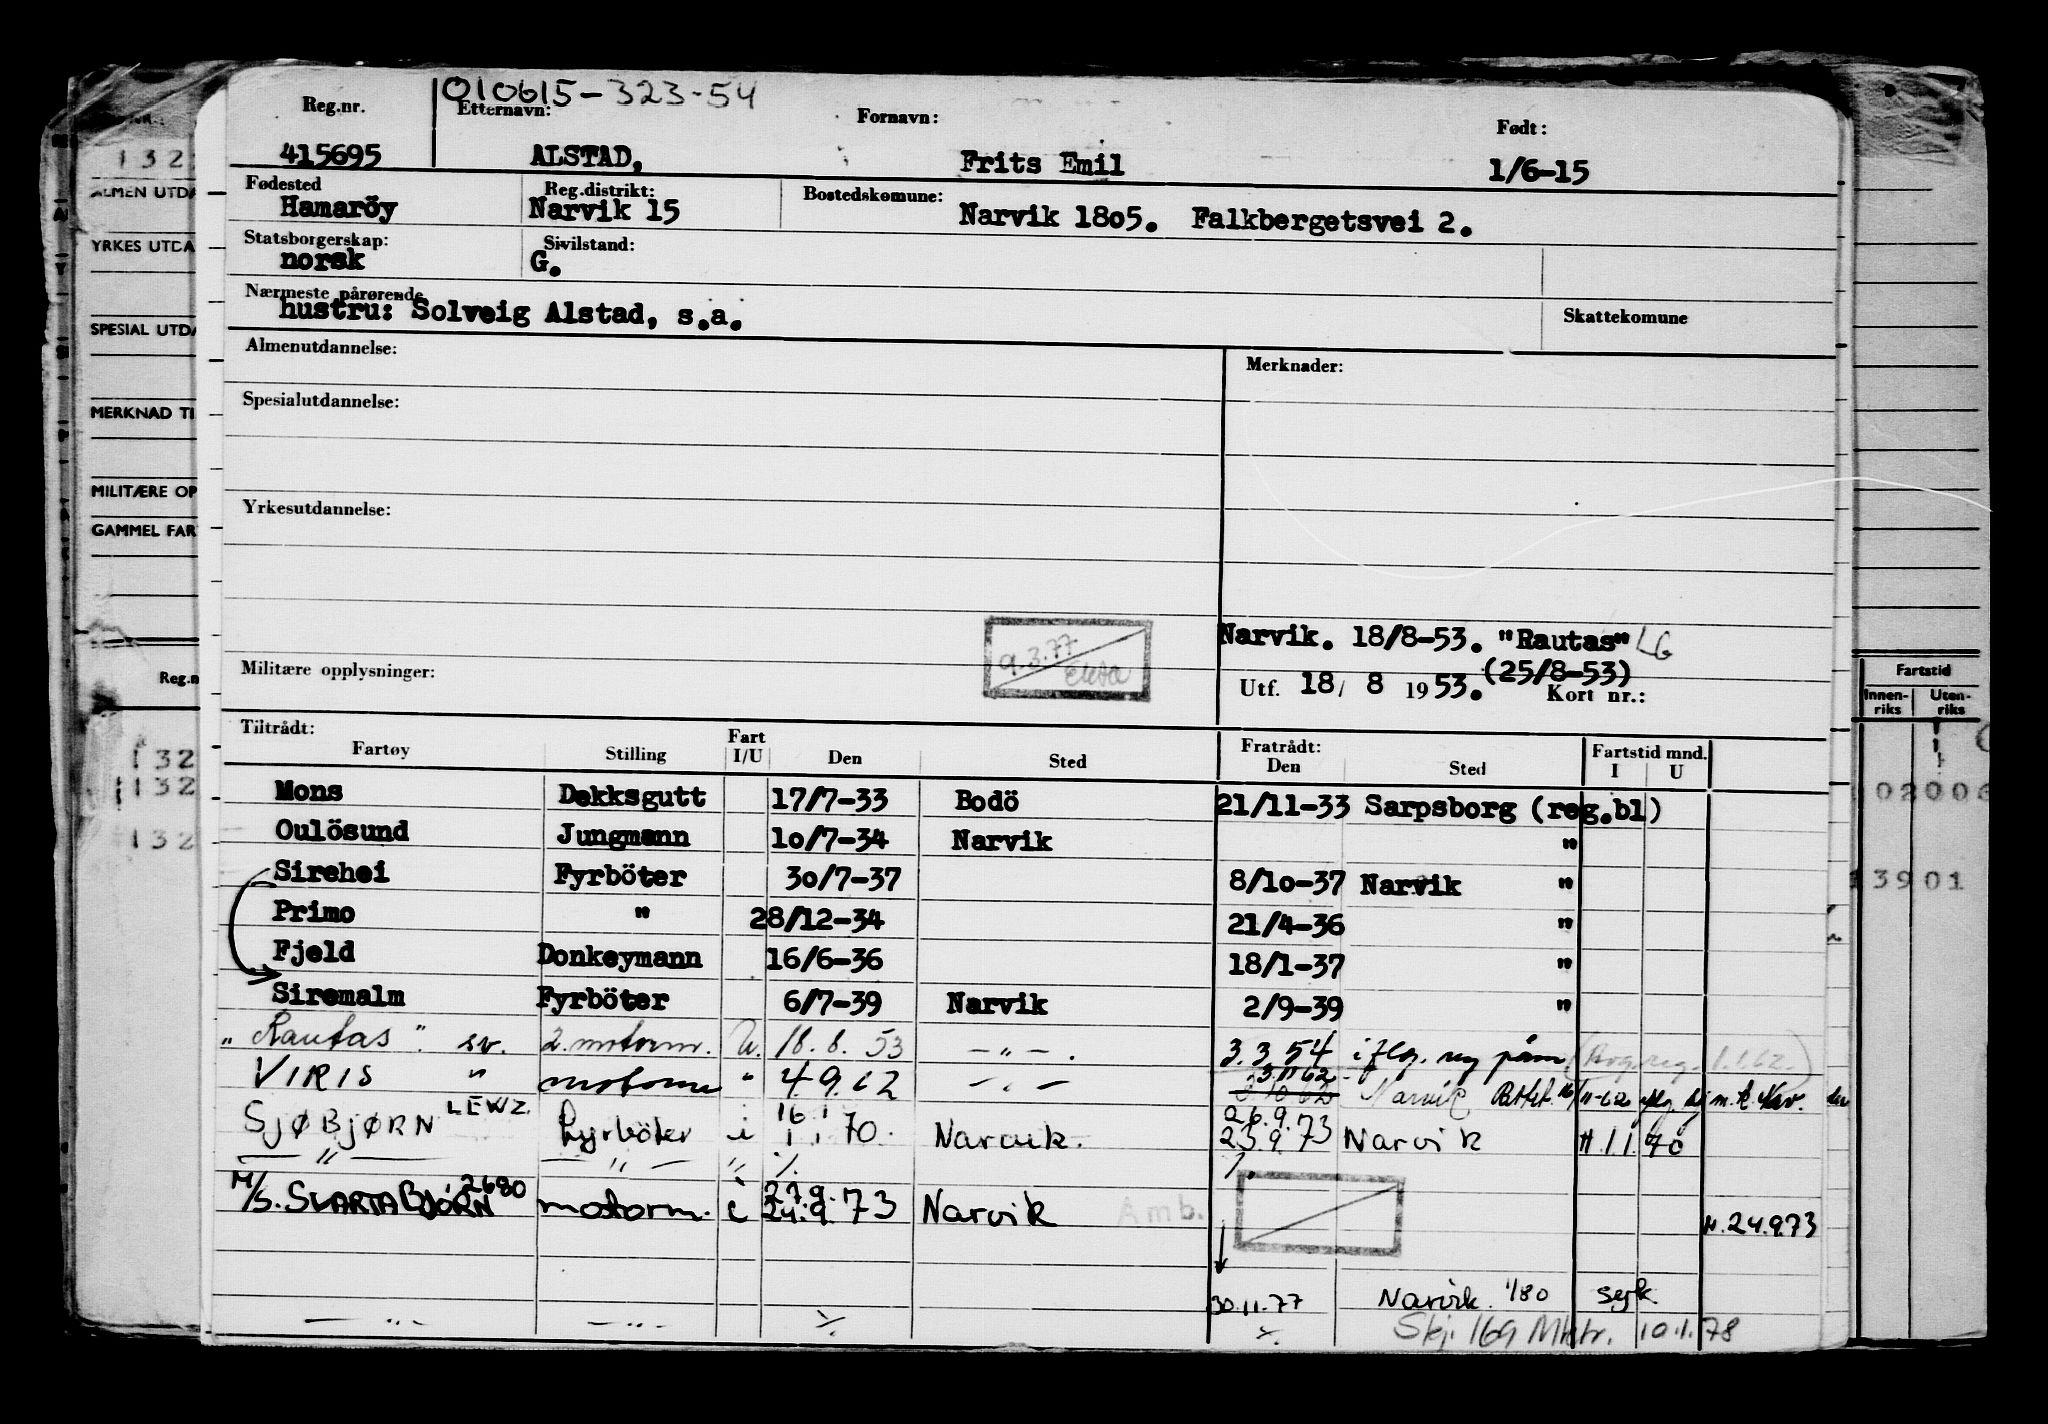 010615-323-54
Reg.nr. Etternavn: Fornavn: Født:
415695 ALSTAD, Frits Emil 1/6-15
Fødested Reg.distrikt: Bostedskomune:
Hamaröy Narvik 15 Narvik 1805. Falkbergetsvei 2.
Statsborgerskap: Sivilstand:
norsk G.
Nærmeste pårørende
hustru: Solveig Alstad, s.a. Skattekomune
Almenutdannelse: Merknader:
Spesialutdannelse:
Yrkesutdannelse:
Narvik. 18/8-53. "Rautas" LG
9.3.77
Militære opplysninger: (25/8-53)
Utf. 18/ 8 1953. Kort nr.:
Tiltrådt: Fart Fratrådt: Fartstid mnd.
Fartøy Stilling I/U Den Sted Den Sted I U
Mons Dekksgutt 17/7-33 Bodö 21/11-33 Sarpsborg (reg.bl)
Oulösund Jungmann 10/7-34 Narvik "
Sirehei Fyrböter 30/7-37 8/10-37 Narvik "
Primo " 28/12-34 21/4-36 "
Fjeld Donkeymann 16/6-36 18/1-37 "
Siremalm Fyrböter 6/7-39 Narvik 2/9-39 "
"Rautas". sv. 2. motorm. U. 18.8.53 -"-. 3.3.54
VIRIS " motorm " 4.9.62 -"- 3/11 62 Narvik
SJØBJØRN LEWZ. Fyrböter i 16/1 1.1.70. Narvik. 26.9. 23.9.73 Narvik H.1.1.70
-"- -"- " %. %.
M/S. SVARTABJØRN 2680 motorm. i 27.9. 24.9.73 Narvik Amb. H.24.9.73
30.11.77 Narvik. 1/80 syk
-"- -"- %. %. Skj. 169 Mtstr. 10.1.78
NR.:
132
ALMEN UTDA
YRKES UTDA
SPESIAL UTDA
MERKNAD TI
MILITÆRE OP
GAMMEL FAR
Reg.n
132
132
132
Fartstid
Innen-riks Uten-riks
02006
3901